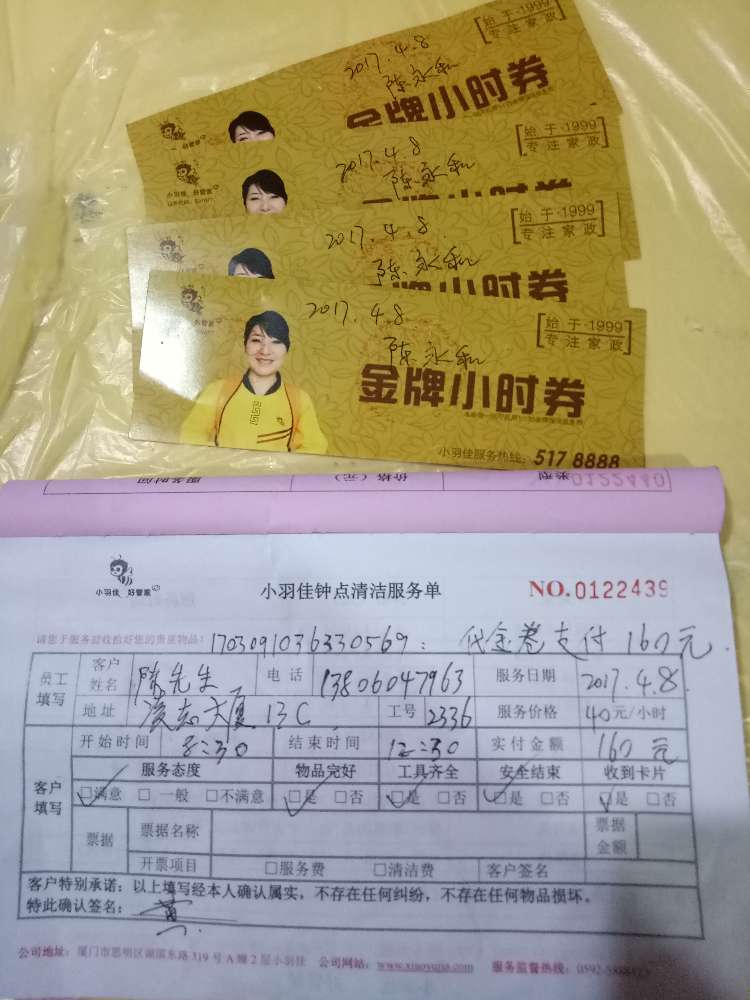 始于·1999
2017.4.8
专注家政
陈永和
金牌小时券
始于·1999
2017.4.8
专注家政
陈永和
小羽佳 好管家
始于·1999
2017.4.8
专注家政
陈永和
牌小时券
始于·1999
2017.4.8
专注家政
陈永和
金牌小时券
小羽佳服务热线: 517 8888
服务时间 价格(元) 类型 0122440
小羽佳 好管家
小羽佳钟点清洁服务单 NO.0122439
请您于服务前收拾好您的贵重物品: 1703091036330569: 代金券支付160元.
员工填写 客户姓名 陈先生 电话 13806047963 服务日期 2017.4.8
地址 凌志大厦13C 工号 2336 服务价格 40元/小时
客户填写 开始时间 8:30 结束时间 12:30 实付金额 160元
服务态度 物品完好 工具齐全 安全结束 收到卡片
☑满意 □一般 □不满意 ☑是 □否 ☑是 □否 ☑是 □否 ☑是 □否
票据 票据名称 票据金额
开票项目 □服务费 □清洁费 客户签名
客户特别承诺:以上填写经本人确认属实,不存在任何纠纷,不存在任何物品损坏。
特此确认签名: 黄
公司地址:厦门市思明区湖滨东路319号A幢2层小羽佳 公司网站: 服务监督热线: